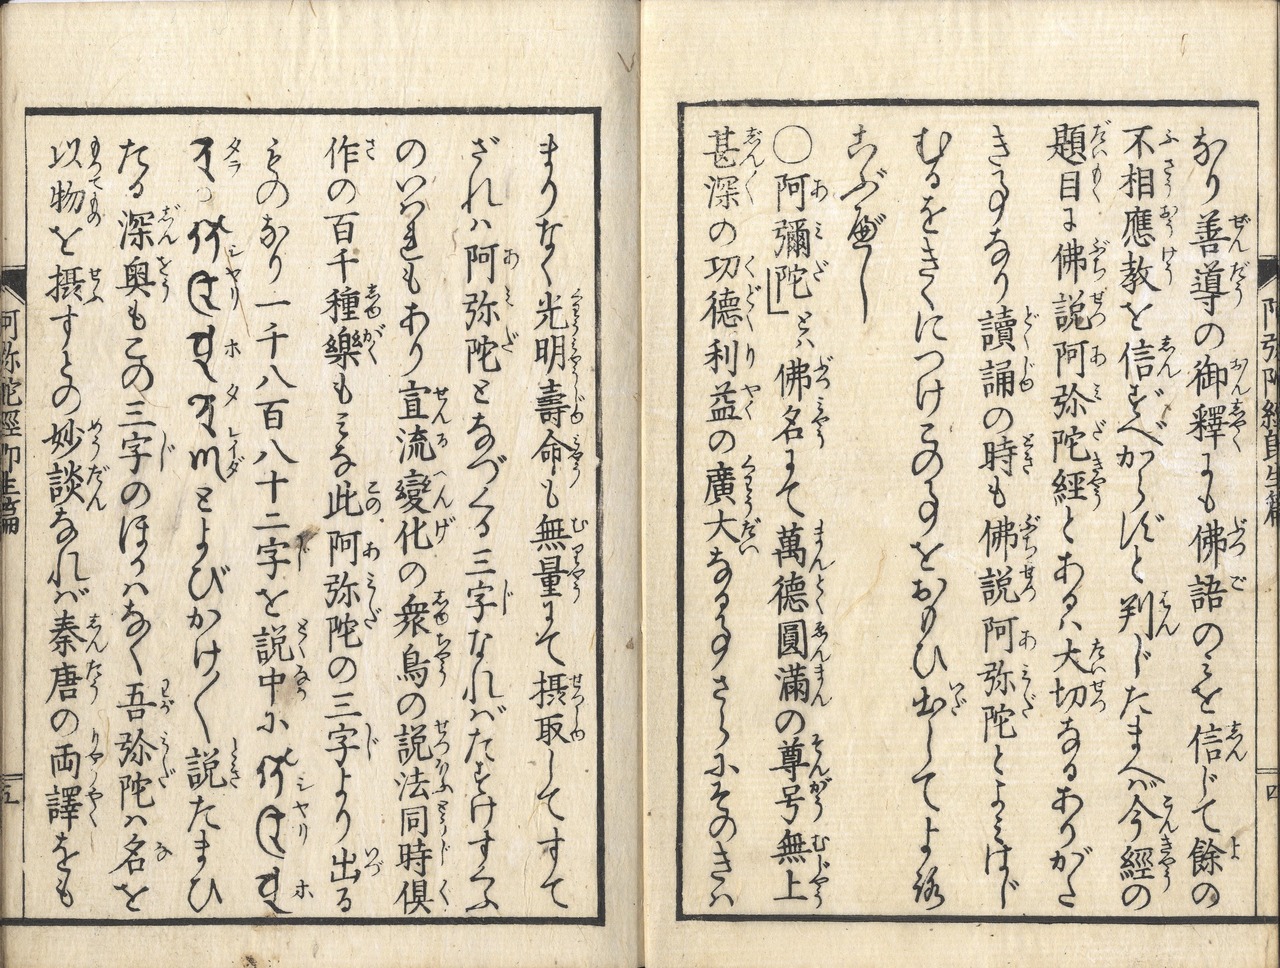 なり善導の御釋にも佛語のみを信じて餘の
不相應教を信ずべからずと判じたまへば今經の
題目に佛説阿弥陀經とあるハ大切なるありがた
き事なり讀誦の時も佛説阿弥陀とよみはじ
むるをきくにつけこの事をおもひ出してよろ
こぶべし
〇阿彌陀とハ佛名にて萬德圓滿の尊号無上
甚深の功德利益の廣大なる事さらにそのきハ
まりなく光明壽命も無量にて摂取してすて
ざれハ阿弥陀となづくる三字なれバたすけすくふ
のいはれもあり宣流變化の衆鳥の説法同時倶
作の百千種樂もみな此阿弥陀の三字より出る
ものなり一千八百八十二字を説中に
とよびかけ〱説たまひ
たる深奥もこの三字のほかハなく吾弥陀ハ名を
以物を摂すとの妙談なれバ秦唐の両譯をも
阿弥陀經即生篇